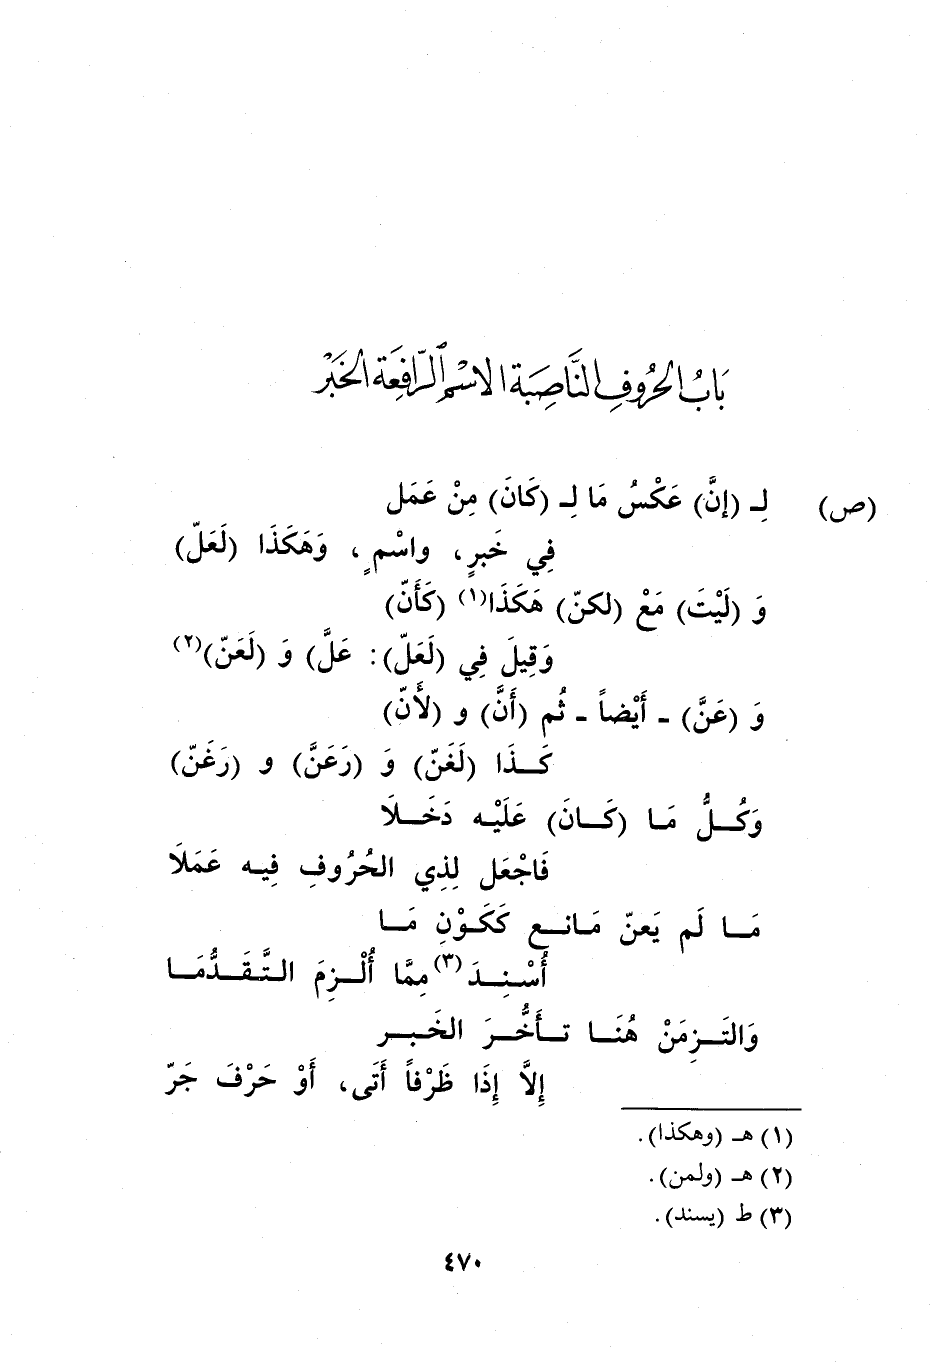 بَابُ الحُرُوفِ النَّاصِبَة الاسْمِ الرَّافِعَة الخَبَرْ
(ص) لِـ (إنَّ) عَكْسُ مَا لِـ (كَانَ) مِنْ عَمَل
فِي خَبرٍ، واسْمٍ، وَهَكَذَا (لَعَلّ)
وَ (لَيْتَ) مَعْ (لكنّ) هَكَذَا(١) (كَأَنّ)
وَقِيلَ فِي (لَعَلّ): عَلَّ) وَ (لَعَنّ)(٢)
وَ (عَنَّ) - أَيْضاً - ثُم (أَنَّ) و (لأَنّ)
كَـذَا (لَغَنّ) وَ (رَعَنَّ) و (رَغَنّ)
وَكُـلُّ مَـا (كَـانَ) عَلَيْـه دَخَـلَا
فَاجْعَل لِذِي الحُرُوفِ فِيـه عَمَلَا
مَـا لَم يَعنّ مَانـع كَكَـوْنِ مَـا
أُسْـنِـدَ(٣) مِمَّا أُلْـزِمَ التَّـقَـدُّمَـا
وَالتَـزِمَنْ هُنَـا تـأَخُّـرَ الخَـبـر
إِلاَّ إِذَا ظَرْفاً أَتَى، أَوْ حَرْفَ جَرّ
(١) هـ (وهكذا).
(٢) هـ (ولمن).
(٣) ط (يسند).
٤٧٠